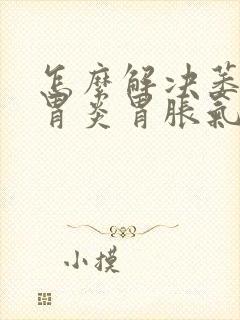 怎麼解决萎
胃炎胃脹氣
小摸